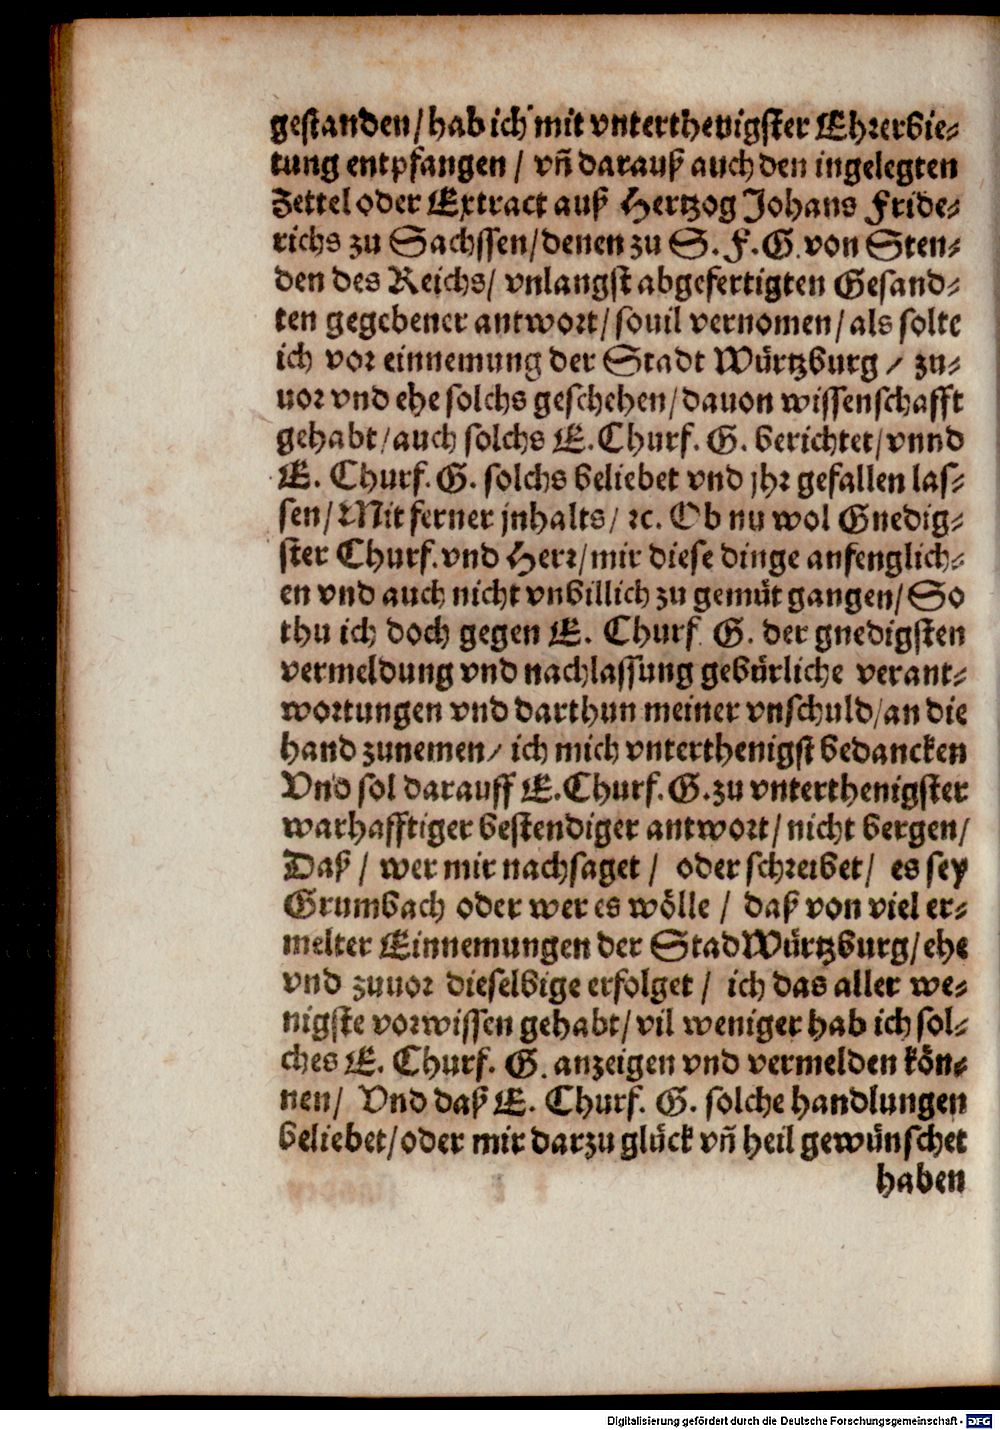 gestanden / hab ich mit vnterthenigster Ehrerbie⸗
tung entpfangen / vñ darauß auch den ingelegten
Zettel oder Extract auß Hertzog Johans Fride⸗
richs zu Sachssen / denen zu S. F. G. von Sten⸗
den des Reichs / vnlangst abgefertigten Gesand⸗
ten gegebener antwort / souil vernomen / als solte
ich vor einnemung der Stadt Würtzburg / zu⸗
uor vnd ehe solchs geschehen / dauon wissenschafft
gehabt / auch solchs E. Churf. G. berichtet / vnnd
E. Churf. G. solchs beliebet vnd jhr gefallen las⸗
sen / Mit ferner jnhalts / ꝛc. Ob nu wol Gnedig⸗
ster Churf. vnd Herr / mir diese dinge anfenglich⸗
en vnd auch nicht vnbillich zu gemüt gangen / So
thu ich doch gegen E. Churf. G. der gnedigsten
vermeldung vnd nachlassung gebürliche verant⸗
wortungen vnd darthun meiner vnschuld / an die
hand zunemen / ich mich vnterthenigst bedancken
Vnd sol darauff E. Churf. G. zu vnterthenigster
warhafftiger bestendiger antwort / nicht bergen /
Daß / wer mir nachsaget / oder schreibet / es sey
Grumbach oder wer es wölle / daß von viel er⸗
melter Einnemungen der Stad Würtzburg / ehe
vnd zuuor dieselbige erfolget / ich das aller we⸗
nigste vorwissen gehabt / vil weniger hab ich sol⸗
ches E. Churf. G. anzeigen vnd vermelden kön⸗
nen / Vnd daß E. Churf. G. solche handlungen
beliebet / oder mir darzu glück vñ heil gewünschet
haben
Digitalisierung gefördert durch die Deutsche Forschungsgemeinschaft - DFG